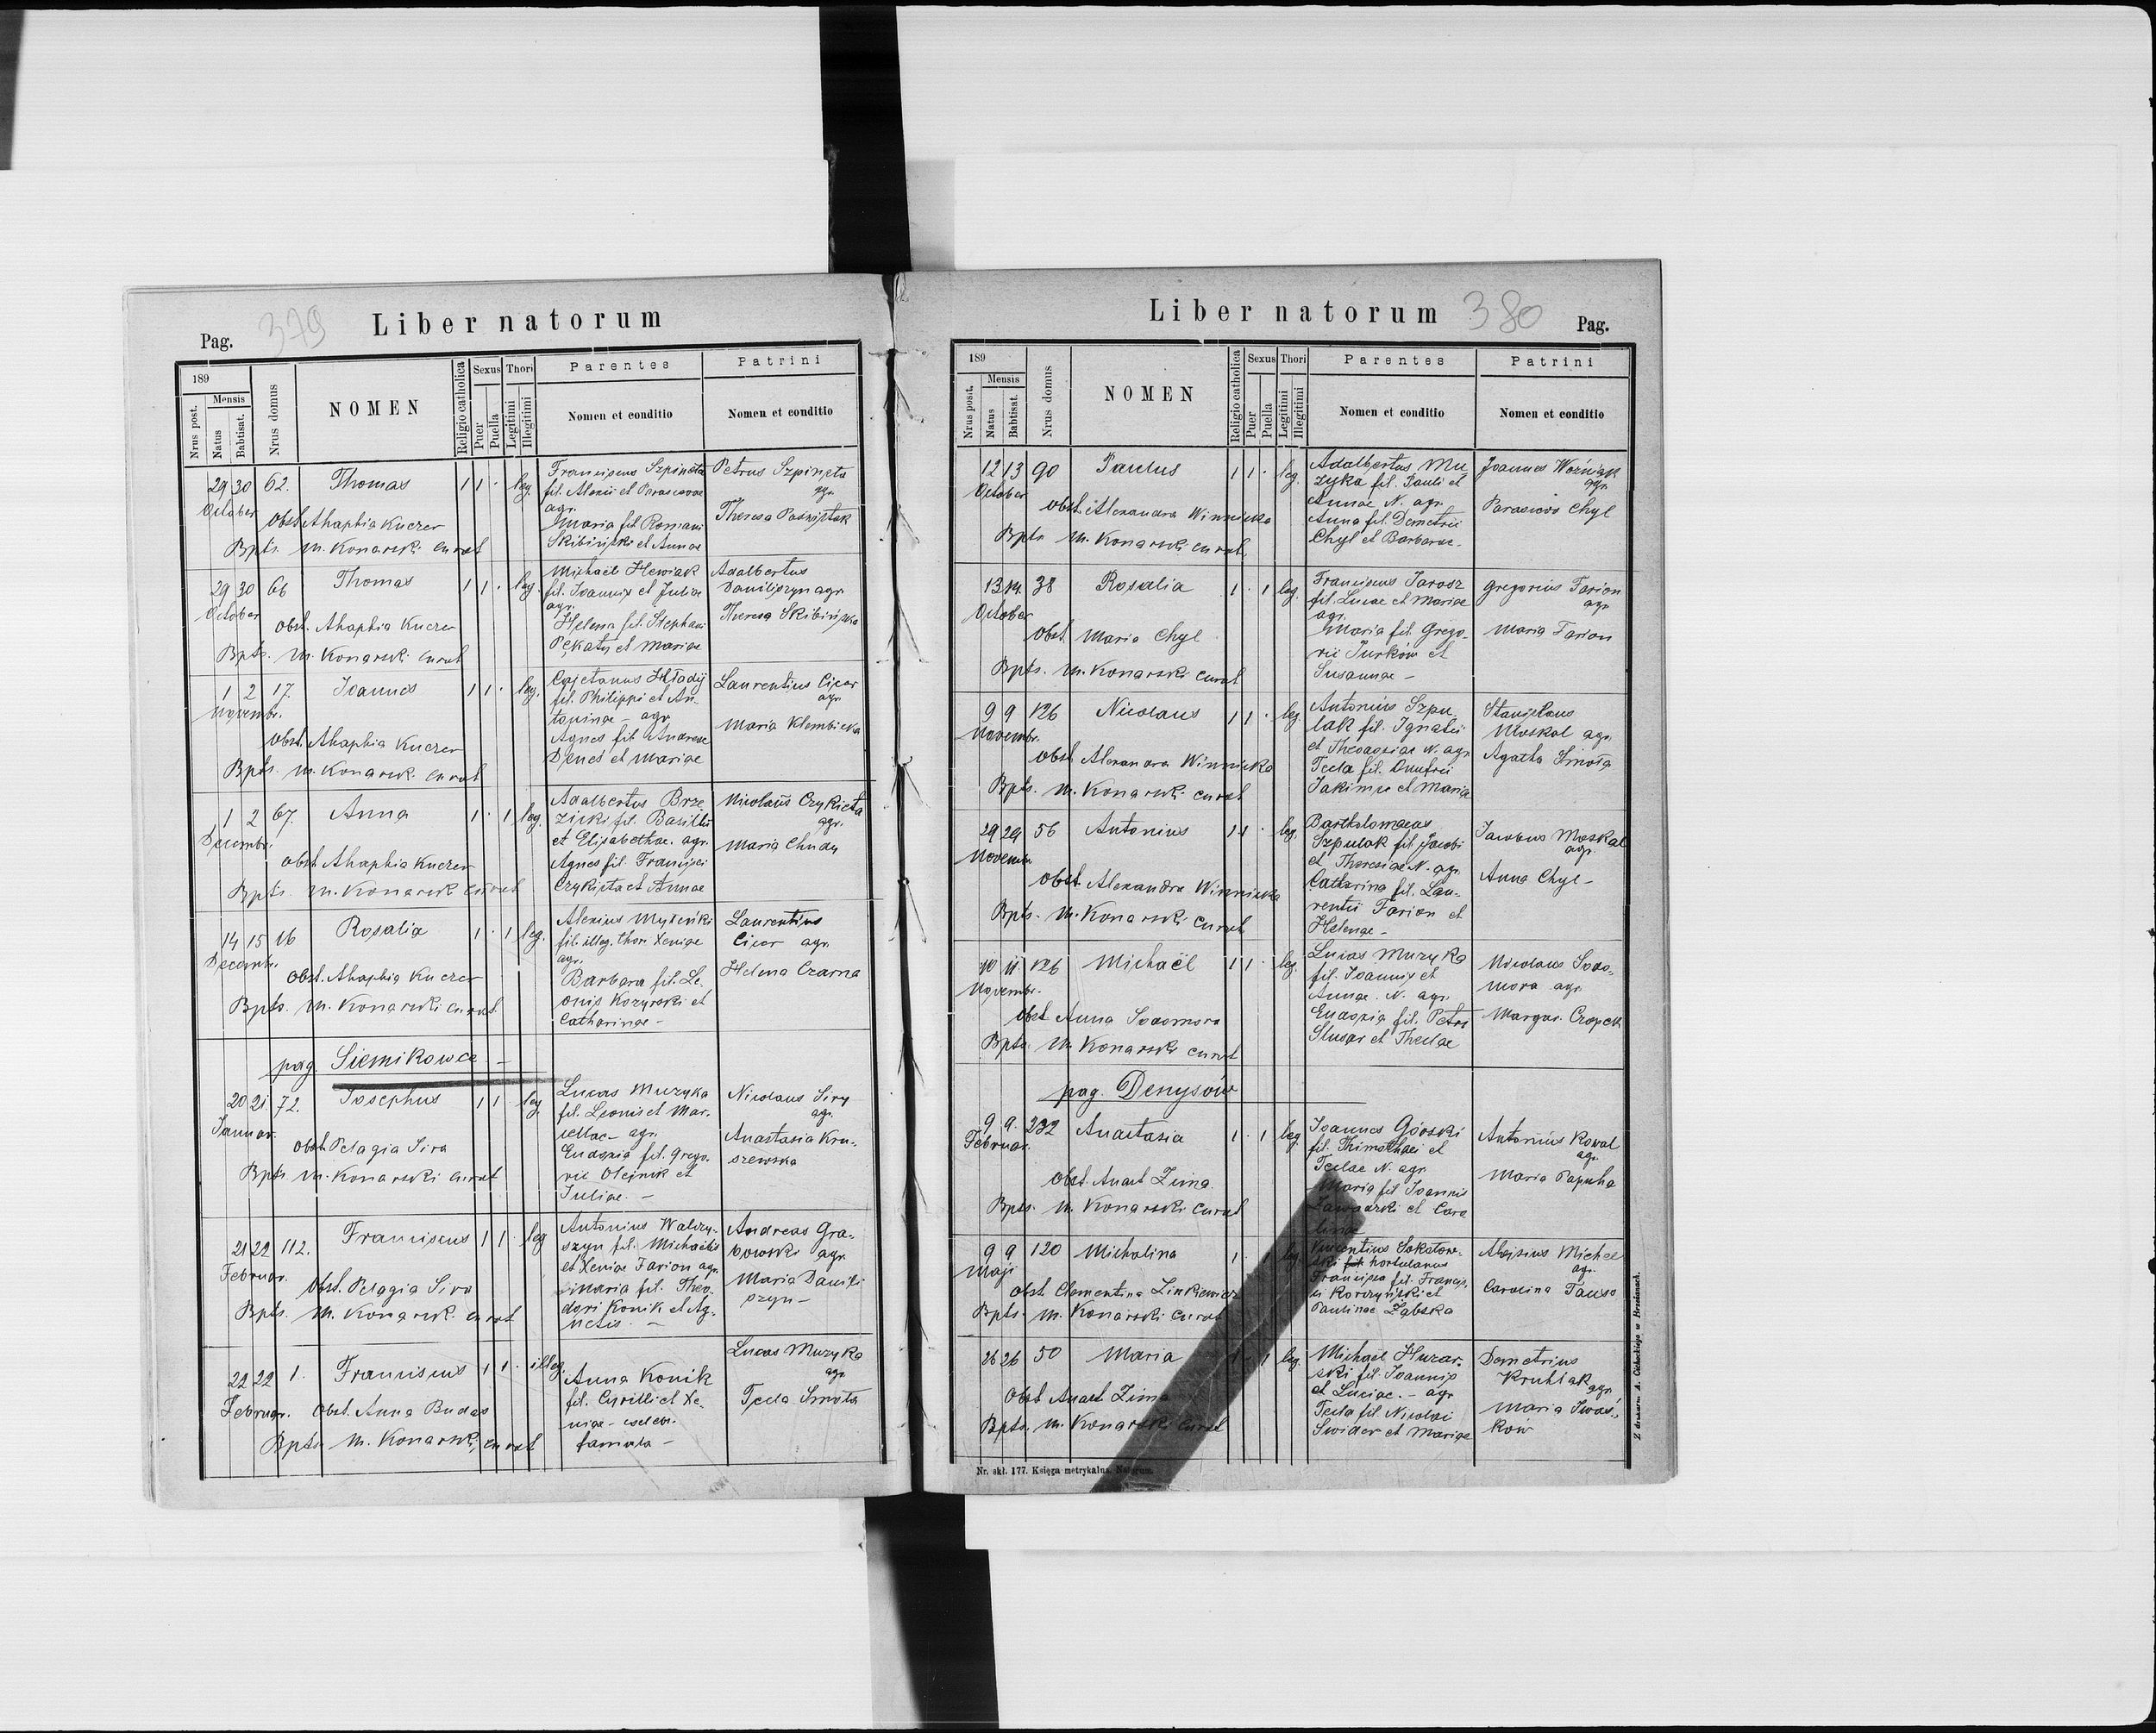 Pag. 379 Liber natorum
189 Mensis Nrus domus NOMEN Religio catholica Sexus Thori Parentes Patrini
Nrus post. Natus Babtisat. Puer Puella Legitimi Illegitimi Nomen et conditio Nomen et conditio
29 30 62. Thomas 1 1 · leg. Franciscus Szpineta Petrus Szpineta
October fil. Alexii et Parascevae agr.
agr. Theresa
Obst. Ahaphia Kuczer Maria fil. Romani
Bpts. M. Konarski curat Skibiński et Annae
29 30 66 Thomas 1 1 · leg. Michaël Hewiak Adalbertus
October fil. Joannis et Juliae Daniliszyn agr.
agr. Theresa Skibińska
Obst. Ahaphia Kuczer Helena fil. Stephani
Bpts. M. Konarski curat Pękaty et Mariae
1 2 17. Joannes 1 1 · leg. Cajetanus Hładij Laurentius Cicor
Novembr. fil. Philippi et An- agr.
toninae - agr. Maria Klembicka
Obst. Ahaphia Kuczer Agnes fil. Andreae
Bpts. M. Konarski curat Denes et Mariae
1 2 67. Anna 1 · 1 leg. Adalbertus Brze- Nicolaus Czykieta
Decembr. zicki fil. Basilii agr.
et Elisabethae. agr. Maria Chudy
Obst. Ahaphia Kuczer Agnes fil. Francisci
Bpts. M. Konarski curat Czykieta et Annae
14 15 16 Rosalia 1 · 1 leg. Alexius Laurentius
Decembr. fil. illeg. thori Xeniae Cicor agr.
agr. Helena Czarna
Obst. Ahaphia Kuczer Barbara fil. Le-
Bpts. M. Konarski curat onis Kozyrski et
Catharinae -
pag. Siemikowce -
20 21 72. Josephus 1 1 leg. Lucas Muzyka Nicolaus Siry
Januar. fil. Leonis et Mar- agr.
cellae - agr. Anastasia Kru-
Obst. Pelagia Sira Eudoxia fil. Grego- szewska
Bpts. M. Konarski curat rii Olejnik et
Juliae. -
21 22 112. Franciscus 1 1 · leg. Antonius Walczy- Andreas Gra-
Februar. szyn fil. Michaëlis bowski agr.
et Xeniae Farion agr. Maria Danili-
Obst. Pelagia Sira Maria fil. Theo- szyn -
Bpts. M. Konarski curat dori Konik et Ag-
netis. -
22 22 1. Franciscus 1 1 · illeg. Anna Konik Lucas Muzyka
Februar. fil. Cyrilli et Xe- agr.
Obst. Anna Budas niae - Tecla Smota
Bpts. M. Konarski curat famula -
Liber natorum 380 Pag.
189 Mensis Nrus domus NOMEN Religio catholica Sexus Thori Parentes Patrini
Nrus post. Natus Babtisat. Puer Puella Legitimi Illegitimi Nomen et conditio Nomen et conditio
12 13 90 Paulus 1 1 · leg. Adalbertus Mu- Joannes Woźniak
October zyka fil. Pauli et agr.
Obst. Alexandra Winnicka Annae N. agr. Chyl
Anna fil. Demetrii
Bpts M. Konarski curat. Chyl et Barbarae -
13 14. 38 Rosalia 1 · 1 leg. Franciscus Jarosz Gregorius Farion
October fil. Lucae et Mariae agr.
agr. Maria Farion
Obst. Maria Chyl Maria fil. Grego-
rii Jurków et
Bpts. M. Konarski curat Susannae -
9 9 126 Nicolaus 1 1 · leg. Antonius Szpu- Stanislaus
Novembr. lak fil. Ignatii Moskal agr.
Obst. Alexandra Winnicka et Theodosiae N. agr. Agatha Smota
Tecla fil. Onufrii
Bpts. M. Konarski curat Jakimic et Mariae
29 29 56 Antonius 1 1 · leg. Bartholomaeus Jacobus Moskal
Novembr. Szpulak fil. Jacobi agr.
et Theresiae N. agr. Anna Chyl -
Obst. Alexandra Winnicka Catharina fil. Lau-
Bpts. M. Konarski curat rentii Farion et
Helenae -
10 11 126 Michaël 1 1 · leg. Lucas Muzyka Nicolaus Sodo-
Novembr. fil. Joannis et mora agr.
Annae. N. agr. Margar. Czopek
Obst. Anna Sodomora Eudoxia fil. Petri
Bpts. M. Konarski curat Slusar et Theclae
pag. Denysów
9 9. 232 Anastasia 1. · 1 leg. Joannes Górski Antonius Kowal
Februar. fil. Thimothaei et agr.
Teclae N. agr. Maria Papuha
Obst. Anast Zima. Maria fil Joannis
Bpts. M. Konarski curat Zawadzki et Caro
linae
9 9 120 Michalina 1. · 1 leg. Vincentius Sokołow- Aloisius Michel
Maji ski fil. hortulanus agr.
Obst. Clementina Linkiewicz Francisca fil. Francis- Carolina
Bpts. M. Konarski curat ci Korczyński et
Paulinae Ząbska
26 26 50 Maria 1 · 1 leg. Michaël Huzar- Demetrius
ski fil. Joannis Kruhlak
Obst Anast Zima et Luciae. - agr agr.
Bpts. M. Konarski curat Tecla fil. Nicolai Maria Iwas-
Swider et Mariae ków
Nr. skł. 177. Księga metrykalna. Natorum.
Z drukarn A. Cichockiego w Brzeżanach.